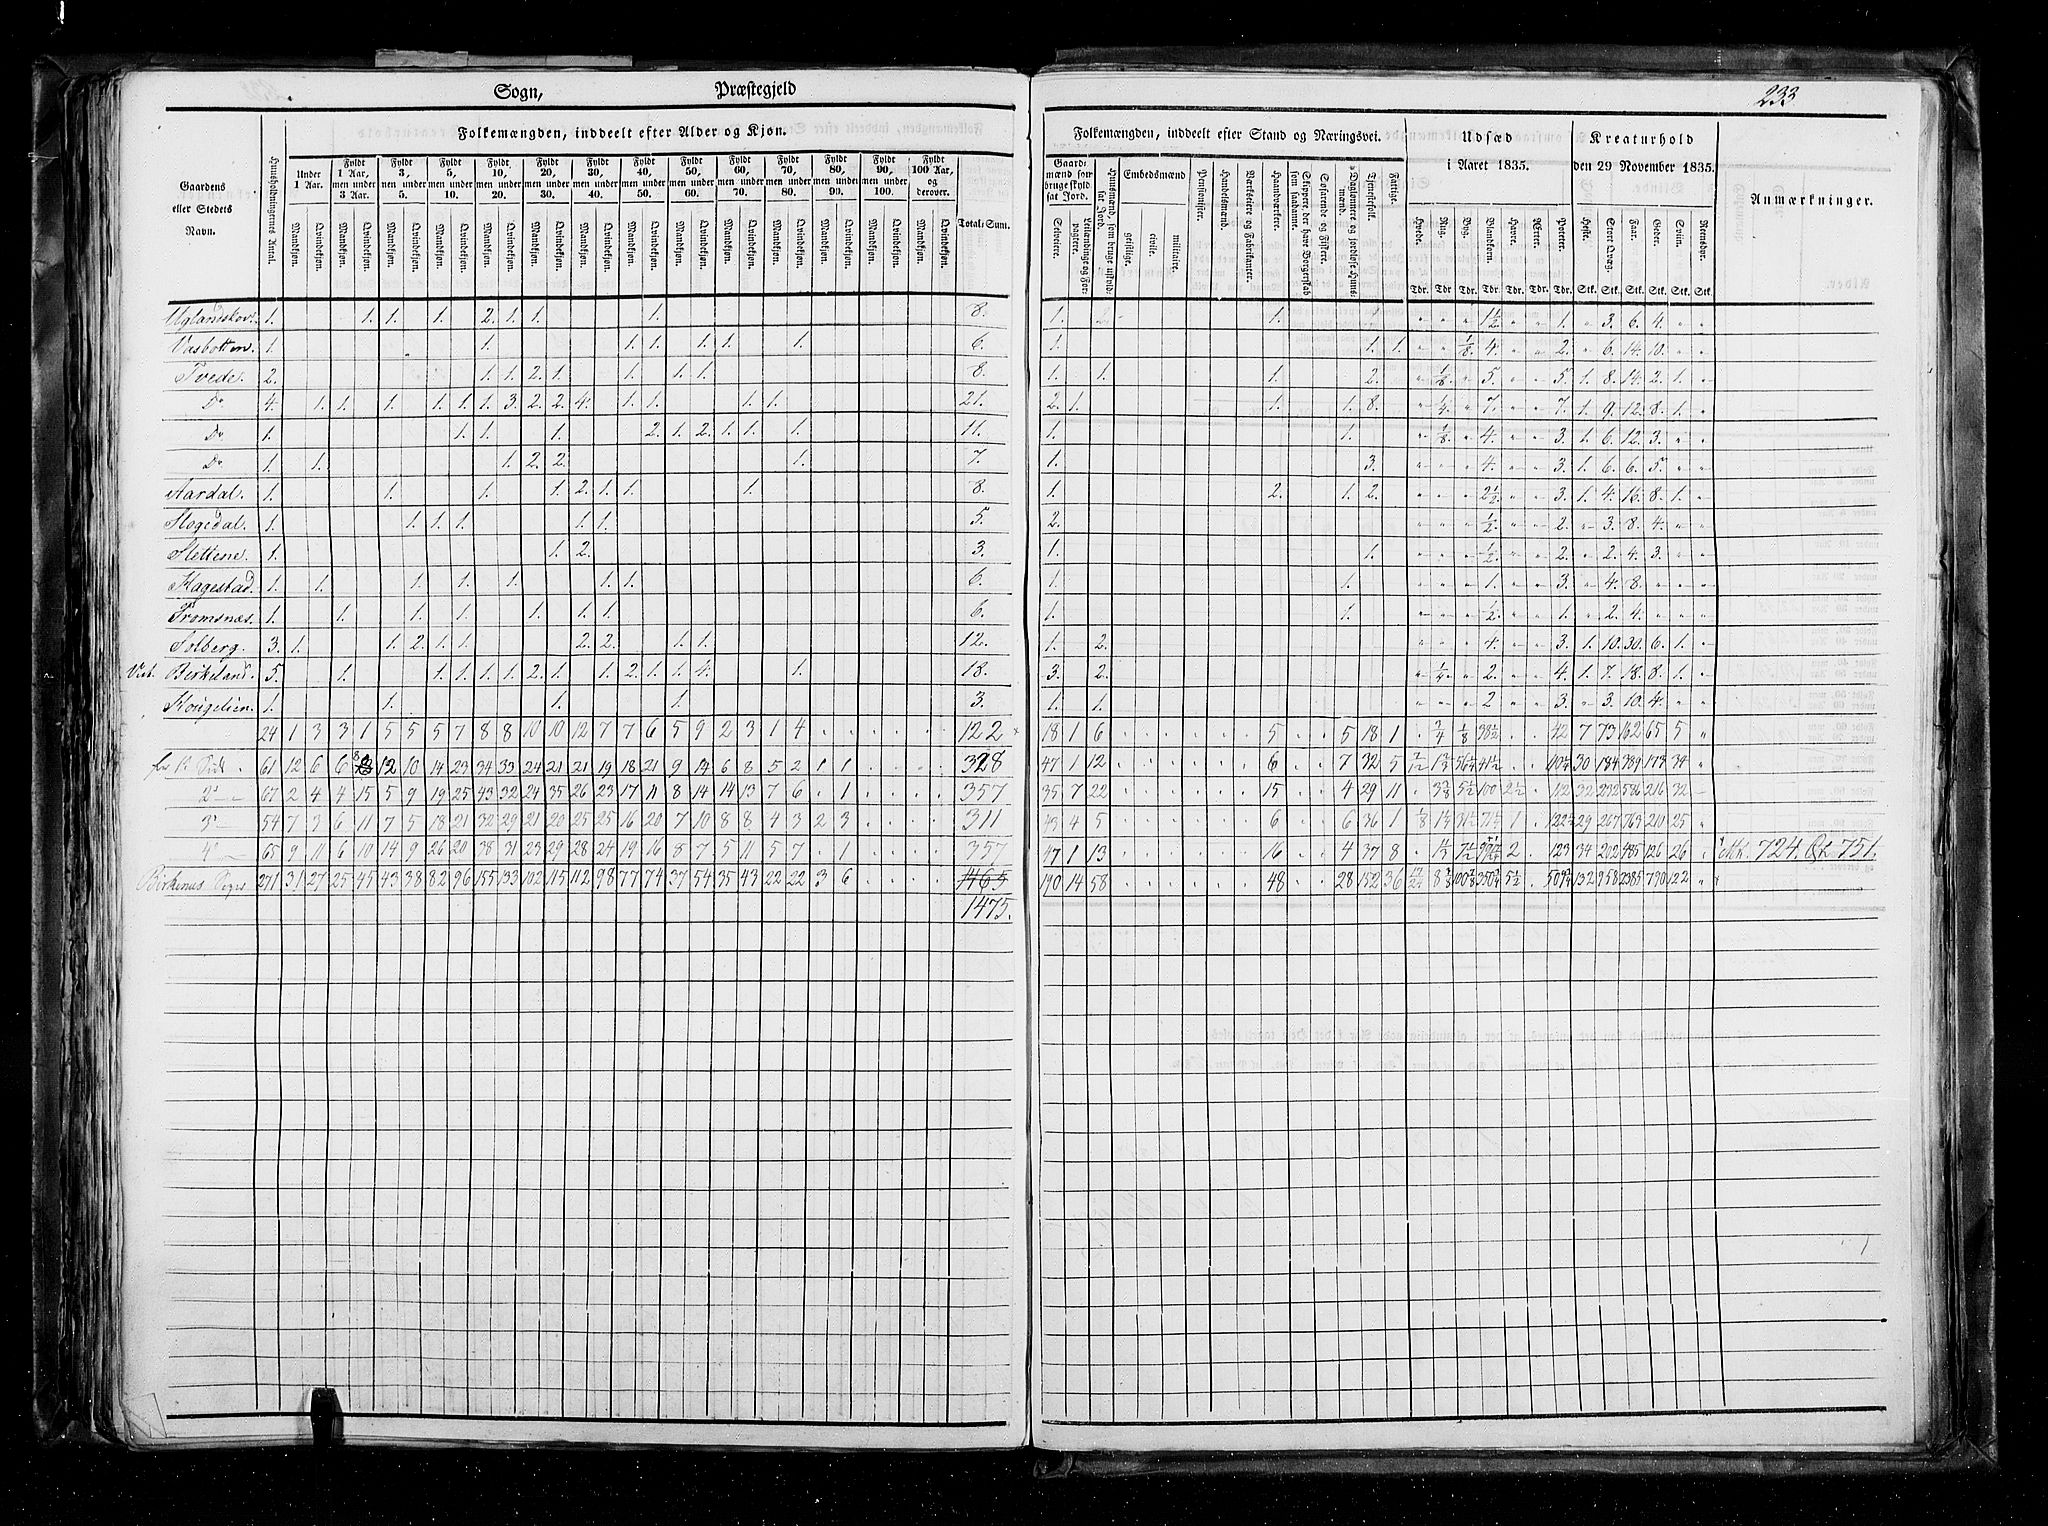 Sogn, Præstegjeld
Folkemængden, inddeelt efter Alder og Kjøn.
Gaardens eller Stedets Navn.
Huusholdningernes Antal.
Under 1 Aar.
Fyldt 1 Aar, men under 3 Aar.
Fyldt 3, men under 5.
Fyldt 5, men under 10.
Fyldt 10, men under 20.
Fyldt 20, men under 30.
Fyldt 30, men under 40.
Fyldt 40, men under 50.
Fyldt 50, men under 60.
Fyldt 60, men under 70.
Fyldt 70, men under 80.
Fyldt 80, men under 90.
Fyldt 90, men under 100.
Fyldt 100 Aar, og derover.
Mandkjøn. Qvindekjøn.
Total-Sum.
Vasbotten. 1. 1. 1. 1. 1. 1. 1. 6.
Tvede. 2. 1. 1. 2. 1. 1. 1. 1. 8.
Do 4. 1. 1. 1. 1. 1. 1. 3. 2. 2. 4. 1. 1. 1. 1. 21.
Do 1. 1. 1. 1. 2. 1. 2. 1. 1. 1. 11.
Do 1. 1. 1. 2. 2. 1. 7.
Aardal. 1. 1. 1. 1. 2. 1. 1. 1. 8.
1. 1. 1. 1. 1. 1. 5.
1. 1. 2. 3.
1. 1. 1. 1. 1. 1. 1. 6.
Tromsnæs. 1. 1. 1. 1. 1. 1. 1. 6.
Solberg. 3. 1. 1. 2. 1. 1. 2. 2. 1. 1. 12.
Birkeland. 5. 1. 1. 1. 1. 1. 2. 1. 1. 2. 1. 1. 4. 1. 18.
1. 1. 1. 1. 3.
24 1 3 3 1 5 5 5 7 8 8 10 10 12 7 7 6 5 9 2 3 1 4 122
61 12 6 6 8 12 10 14 23 34 33 24 21 21 19 18 21 9 14 6 8 5 2 1 1 328
2 67 2 4 4 15 5 9 19 25 43 32 24 35 26 23 17 11 8 14 14 13 7 6 1 357
3 54 7 3 6 11 7 5 18 21 32 29 21 20 25 25 16 20 7 10 8 8 4 3 2 3 311
4 65 9 11 6 10 14 9 26 20 38 31 23 29 28 24 19 16 8 7 5 11 5 7 1 357
Birkenæs Sogn 271 31 27 25 45 43 38 82 96 155 133 102 115 112 98 77 74 37 54 35 43 22 22 3 6 1465
1475.
233
Folkemængden, inddeelt efter Stand og Næringsvei.
Gaardmænd som bruge skyldsat Jord.
Selveiere.
Leilændinge og Forpagtere.
Huusmænd, som bruge uskyldsat Jord.
Embedsmænd
geistlige.
civile.
militaire.
Pensionister.
Handelsmænd.
Værkseiere og Fabrikanter.
Haandværkere.
Skippere, der have Borgerskab som saadanne.
Søfarende og Fiskere.
Daglønnere og jordløse Huusmænd.
Tjenestefolk.
Fattige.
Udsæd i Aaret 1835.
Hvede. Rug. Byg. Blandkorn. Havre. Ærter. Poteter.
Tdr. Tdr. Tdr. Tdr. Tdr. Tdr. Tdr.
Kreaturhold den 29 November 1835.
Heste. Stort Qvæg. Faar. Geder. Sviin. Reensdyr.
Stk. Stk. Stk. Stk. Stk. Stk.
Anmærkninger.
1. 1. 1½ 1. 3. 6. 4.
1. 1. 1. ⅛ 4. 2. 6. 14. 10.
1. 1. 1. 2. ⅛ 5. 5. 1. 8. 14. 2. 1.
2. 1. 1. 1. 8. ¼ 7. 7. 1. 9. 12. 8. 1.
1. 1. ⅛ 4. 3. 1. 6. 12. 3.
1. 3. 4. 3. 1. 6. 6. 5.
1. 2. 1. 2. 2½ 3. 1. 4. 16. 8. 1.
2. ½ 2. 3. 8. 4.
1. 1. ½ 2. 2. 4. 3.
1. 1. 1. 3. 4. 8.
1. 1. ½ 1. 2. 4.
1. 2. 4. 3. 1. 10. 30. 6. 1.
3. 2. ¼ 2. 4. 1. 7. 18. 8. 1.
1. 1. 2 3. 3. 10. 4.
18 1 6 5 5 18 1 ¾ ⅛ 38½ 42 7 73 162 65 5
47 1 12 6 7 32 5 30 184 389 173 34
35 7 22 15 4 29 11 100 112 32 232 586 216 32
43 4 5 6 6 36 1 29 267 763 210 25
47 1 13 16 4 37 8 2 123 34 202 485 126 26 Mk. 724. Qk 751.
190 14 58 48 28 152 36 5½ 132 958 2385 790 122